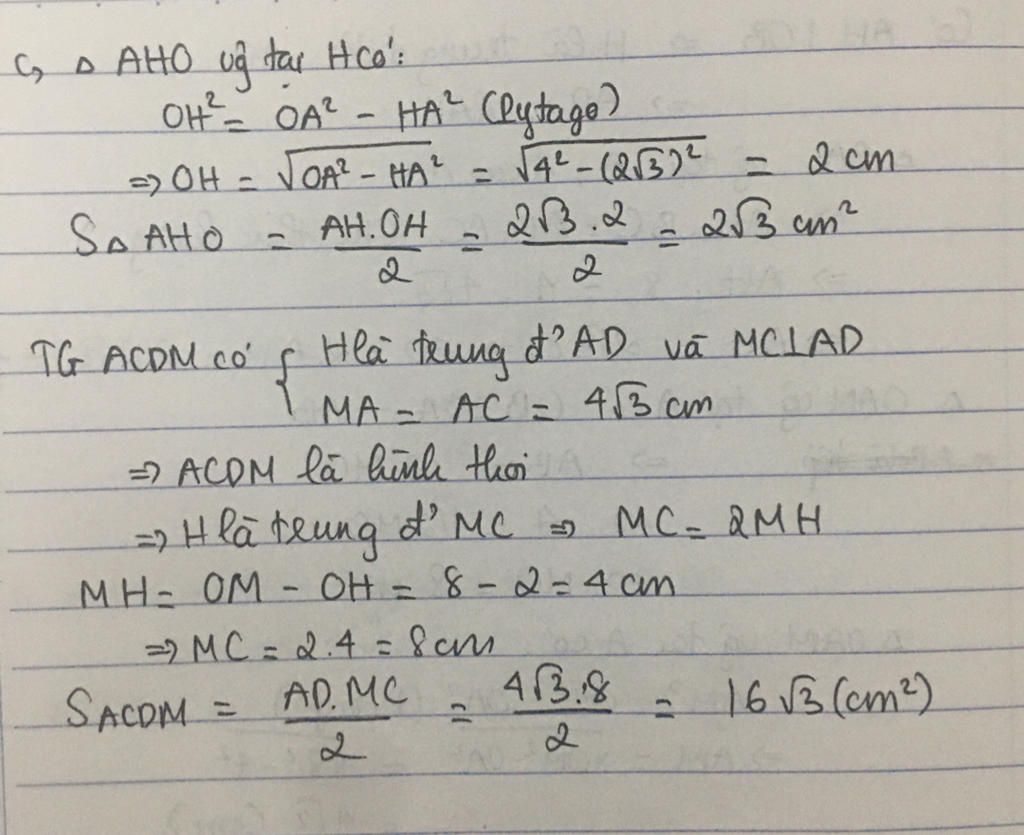 c, Δ AHO vg tại H có:
OH² = OA² - HA² (Pytago)
=> OH = √(OA² - HA²) = √(4² - (2√3)²) = 2 cm
SΔ AHO = AH.OH / 2 = 2√3 . 2 / 2 = 2√3 cm²
TG ACDM có { H là trung đ' AD và MC⊥AD
MA = AC = 4√3 cm
=> ACDM là hình thoi
=> H là trung đ' MC => MC = 2MH
MH = OM - OH = 8 - 2 = 4 cm
=> MC = 2.4 = 8 cm
S ACDM = AD.MC / 2 = 4√3.8 / 2 = 16√3 (cm²)